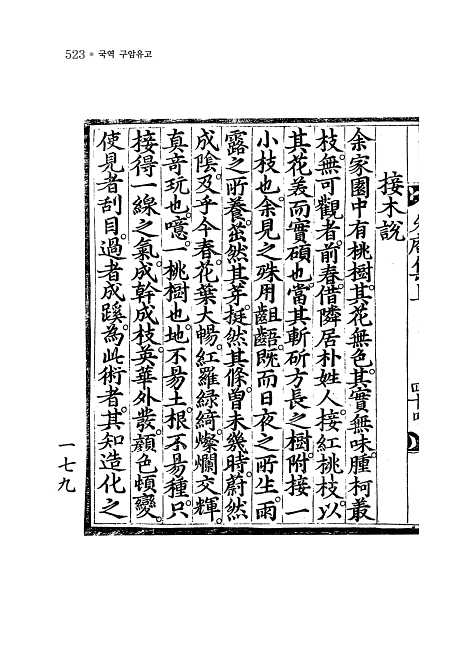 523 국역 구암유고
接木說
余家園中有桃樹。其花無色。其實無味。腫柯叢
枝。無可觀者。前春。借隣居朴姓人。接紅桃枝。以
其花美而實碩也。當其斬斫方長之樹。附接一
小枝也。余見之。殊用齟齬。旣而日夜之所生。雨
露之所養。茁然其芽。挺然其條。曾未幾時。蔚然
成陰。及乎今春。花葉大暢。紅羅綠綺。燦爛交輝。
真奇玩也。噫。一桃樹也。地不易土。根不易種。只
接得一線之氣。成幹成枝。英華外發。顔色頓變。
使見者刮目。過者成蹊。為此術者。其知造化之
一七九